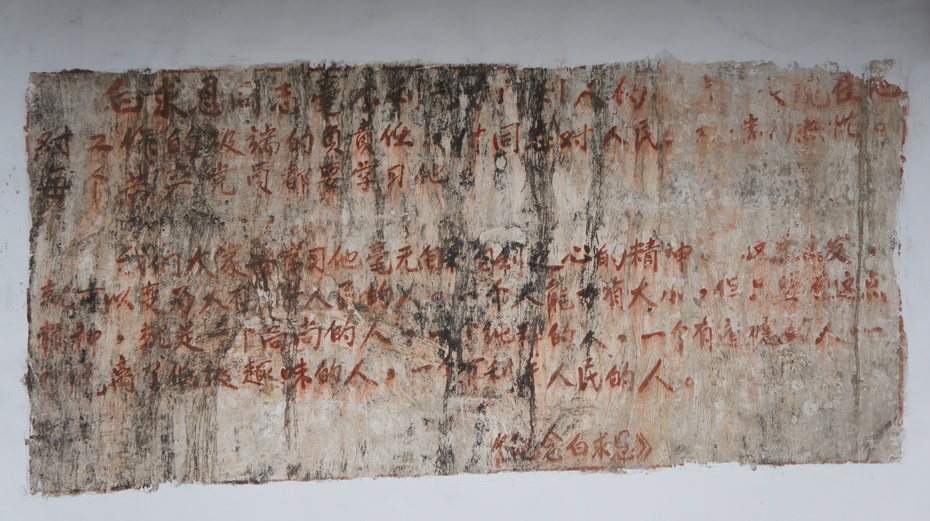 白求恩同志毫不利己专门利人的 表现在他
对工作的极端的负责任，对同志对人民的极端的热忱。
每个共产党员都要学习他。
我们大家要学习他毫无自私自利之心的精神。从这点出发，
就可以变为大有利于人民的人。一个人能力有大小，但只要有这点
精神，就是一个高尚的人，一个纯粹的人，一个有道德的人，一
个脱离了低级趣味的人，一个有利于人民的人。
《纪念白求恩》